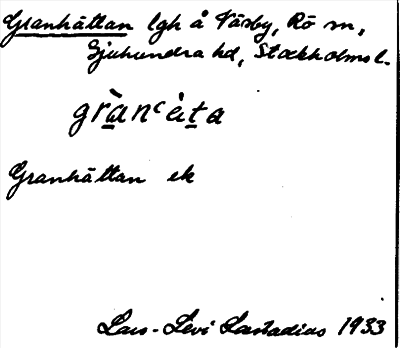 Granhättan lgh å Väsby, Rö sn,
Sjuhundra hd, Stockholms l.
gràn‘èta
Granhättan ek
Lars-Levi Læstadius 1933